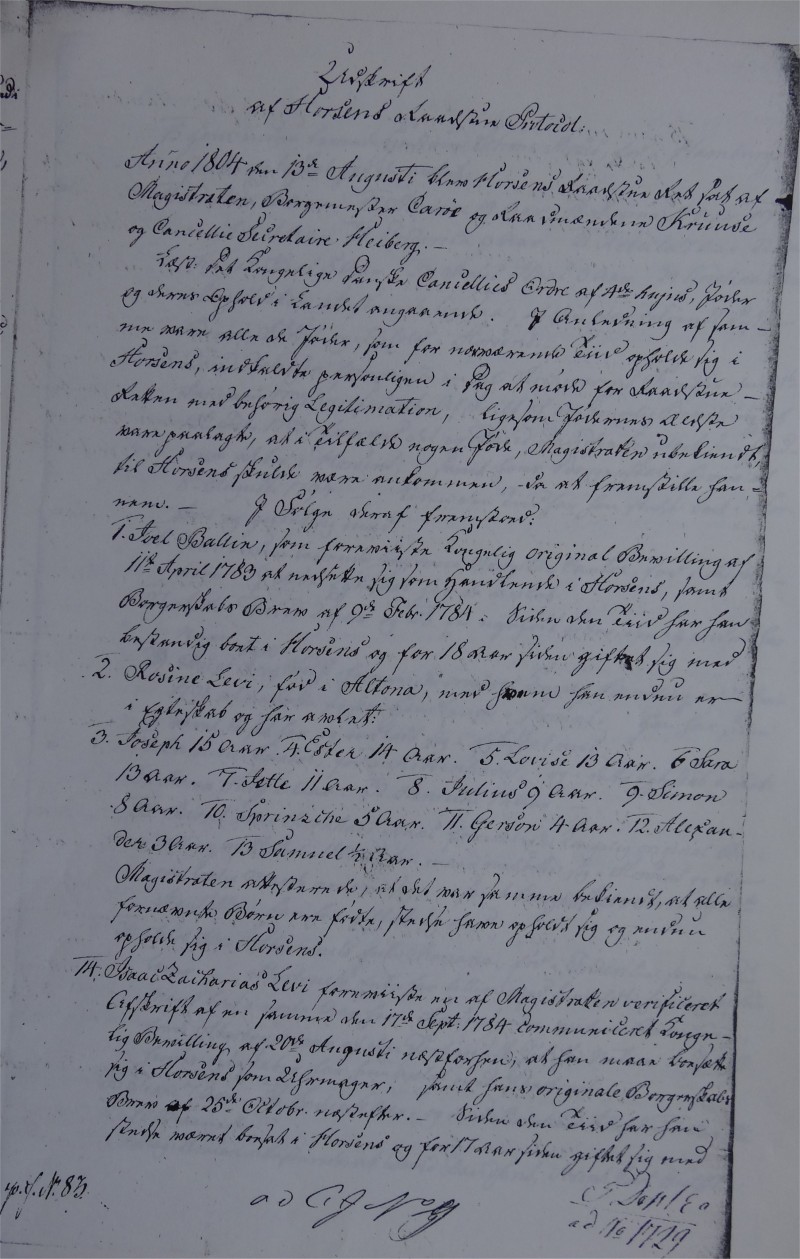 Udskrift
af Horsens Raadstue Protocol:
Anno 1804 den 13de Augusti blev Horsens Raadstue Ret sat af
Magistraten, Borgemester Carøe og Raadmændene Kruuse
og Cancellie Secretaire Heiberg. —
Læst: Det Kongelige Danske Cancellies Ordre af 4de hujus, Jøder
og deres Ophold i Landet angaaende. I Anledning af sam-
me vare alle de Jøder, som for nærværende Tiid opholde sig i
Horsens, indkaldte personligen i Dag at møde for Raadstue-
Retten med behørig Legitimation, ligesom Jødernes Ældste
vare paalagte, at i Tilfælde nogen Jøde, Magistraten ubekiendt,
til Horsens skulde være ankommen, da at fremstille ham=
nem. — I Følge deraf fremstoed:
1. Joel Ballin, som foreviiste Kongelig original Bevilling af
11te April 1783 at nedsætte sig som Handlende i Horsens, samt
Borgerskabs Brev af 9de Febr. 1784. Siden den Tiid har han
bestandig boet i Horsens og for 18 Aar siden giftet sig med
2. Rosine Levi, fød i Altona, med hvem han endnu er
i Egteskab og har avlet:
3. Joseph 15 Aar. 4. Ester 14 Aar. 5. Lovise 13 Aar. 6 Sara
13 Aar. 7. Jette 11 Aar. 8. Julius 9 Aar. 9. Simon
8 Aar. 10. Sprinzche 5 Aar. 11. Gerson 4 Aar. 12. Alexan-
der 3 Aar. 13 Samuel ½ Aar. —
Magistraten attesterede, at det var samme bekiendt, at alle
fornævnte Børn ere fødte, stedse have opholdt sig og endnu
opholde sig i Horsens.
14. Isaac Zacharias Levi foreviiste en af Magistraten verificeret
Afskrift af en samme den 17de Sept. 1784 communiceret Konge-
lig Bevilling af 20de Augusti næstforhen, at han maae boesætte
sig i Horsens som Uhrmager, samt hans originale Borgerskabs
Brev af 25de Octobr. næstefter. — Siden den Tiid har han
stedse været boesat i Horsens og for 17 Aar siden giftet sig med
No. 83.
ad
ad No 1729